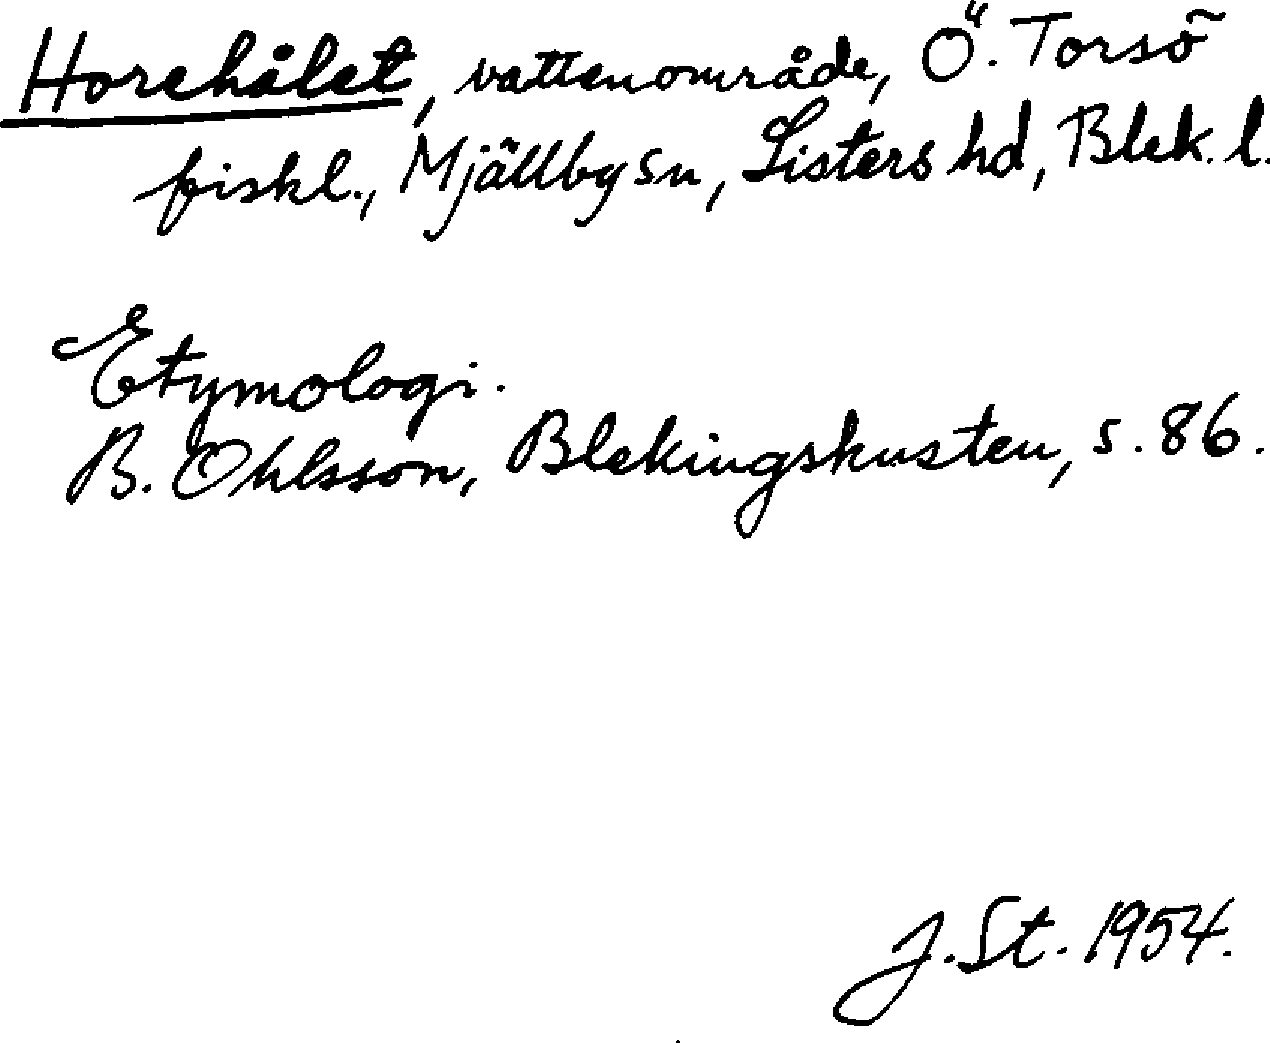 Horehålet, vattenområde, Ö. Torsö
fiskl., Mjällby sn, Listers hd, Blek. l.
Etymologi.
B. Ohlsson, Blekingskusten, s. 86.
J. St. 1954.